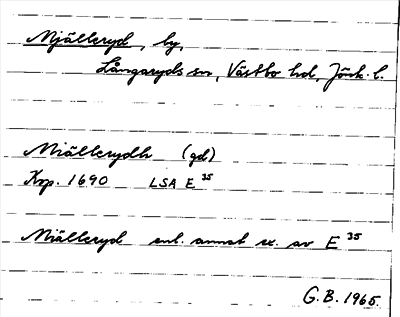 Mjälleryd, by,
Långaryds sn, Västbo hd, Jönk. l.
Miällerydh (gd)
Krp. 1690 LSA E 35
Miälleryd enl. annat ex. av E 35
G.B. 1965